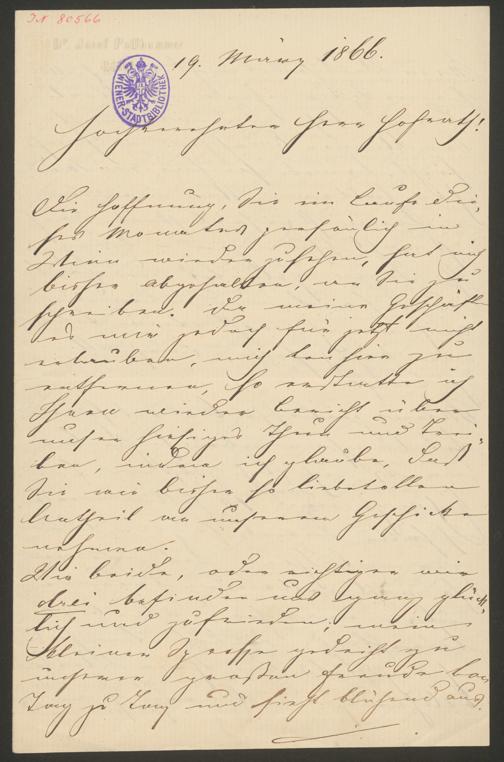 I.N. 80566
Dr. Josef Pollhammer
WIENER-STADTBIBLIOTHEK
19. März 1866.
Hochverehrter Herr Hofrath!
Die Hoffnung, Sie im Laufe die-
ses Monates persönlich in
Wien wiederzusehen, hat mich
bisher abgehalten, an Sie zu
schreiben. Da meine Geschäfte
es mir jedoch für jetzt nicht
erlauben, mich von hier zu
entfernen, so erstatte ich
Ihnen wieder Bericht über
unser hiesiges Thun und Trei-
ben, indem ich glaube, daß
Sie wie bisher so liebevollen
Antheil an unserem Geschicke
nehmen.
Wir beide, oder richtiger wir
drei befinden uns ganz glück-
lich und zufrieden; mein
kleiner Sprosse gedeiht zu
unserer großen Freude von
Tag zu Tag und sieht blühend aus.